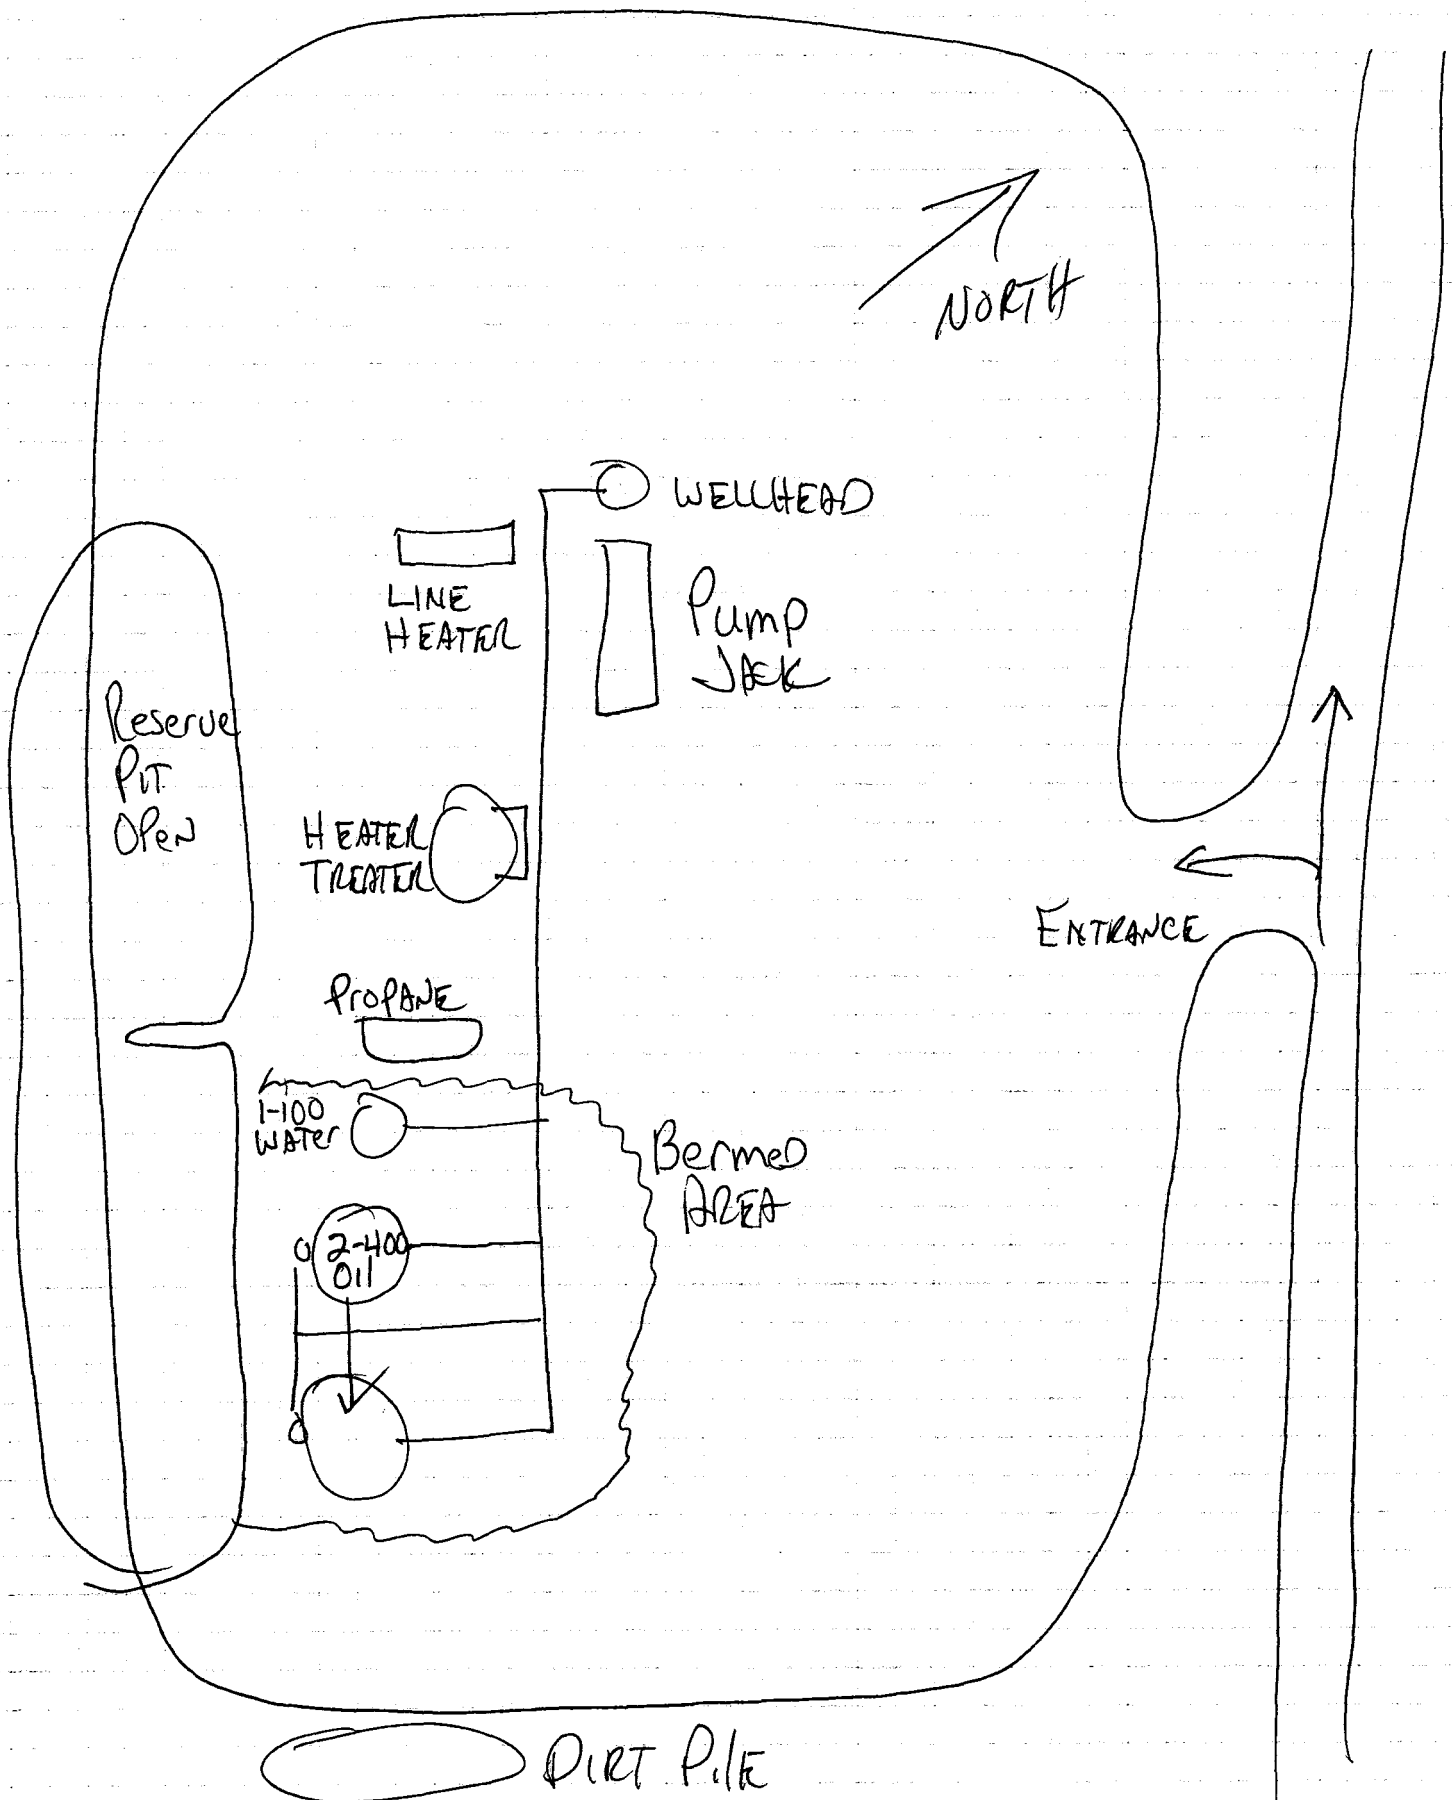 NORTH
WELLHEAD
LINE
HEATER
Pump
JACK
Reserve
PIT
OPEN
HEATER
TREATER
ENTRANCE
PROPANE
1-100
WATER
BermeD
AREA
2-400
Oil
DIRT PilE